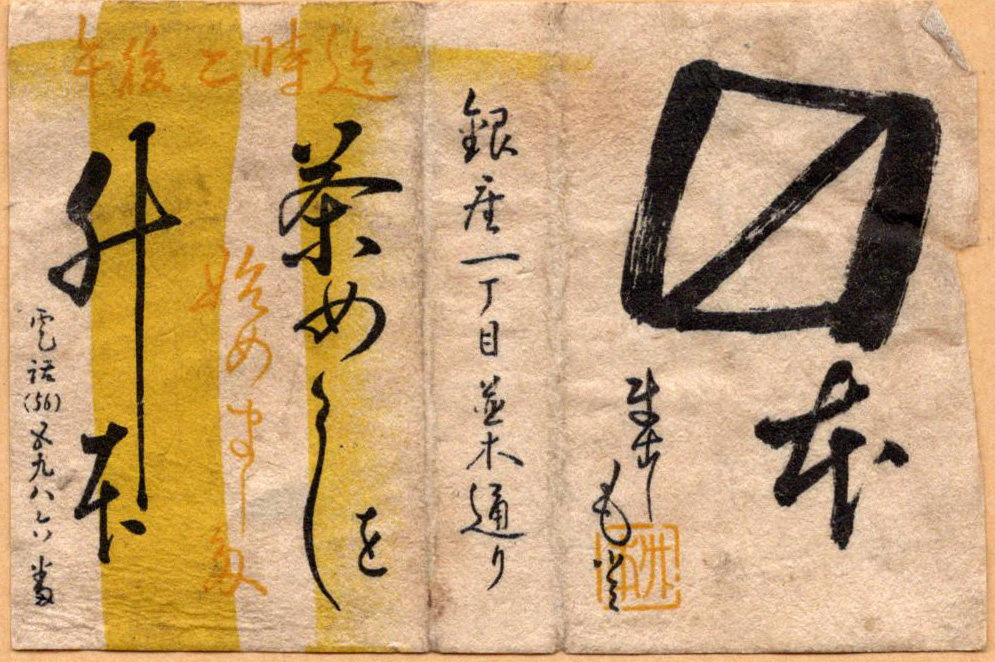 〼本
升本
銀座一丁目並木通り
午後二時迄
茶めしを
始めまし多
升本
電話(56)五九八六番